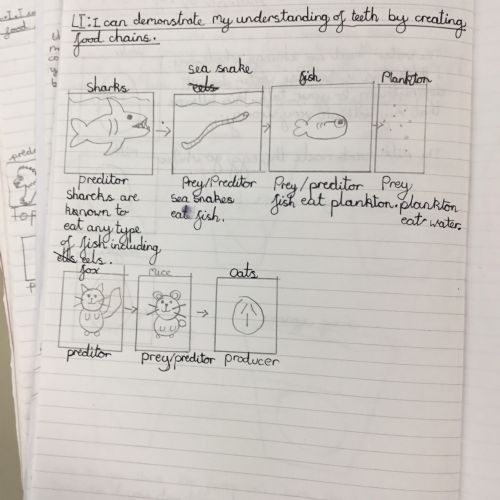 LI: I can demonstrate my understanding of teeth by creating
food chains.
Sharks
sea snake
eels
fish
Plankton
preditor
Prey/Preditor
Prey/preditor
Prey
Sharcks are
known to
eat any type
of fish including
eels eels.
sea snakes
eat fish.
fish eat plankton.
plankton
eat water.
fox
Mice
Oats
preditor
prey/preditor
producer